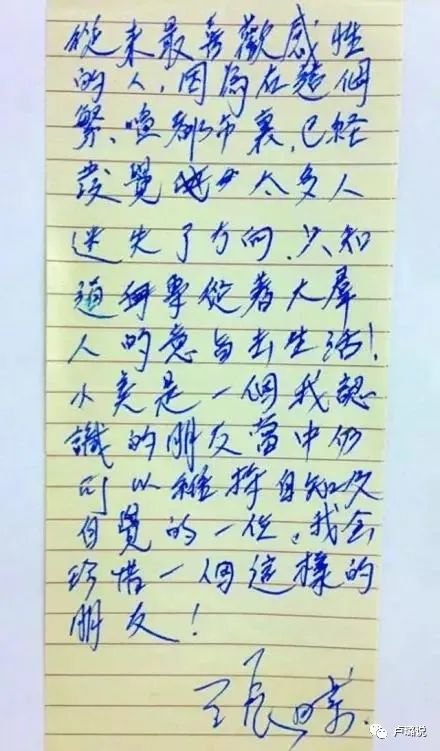 從來最喜歡感性
的人，因為在這個
繁喧都市裏，已經
發覺 太多人
迷失了方向，只知
道 從著大羣
人的意旨去生活！
小美是一個我認
識的朋友當中仍
可以維持自知及
自覺的一位，我会
珍惜一個這樣的
朋友！
卢璐说